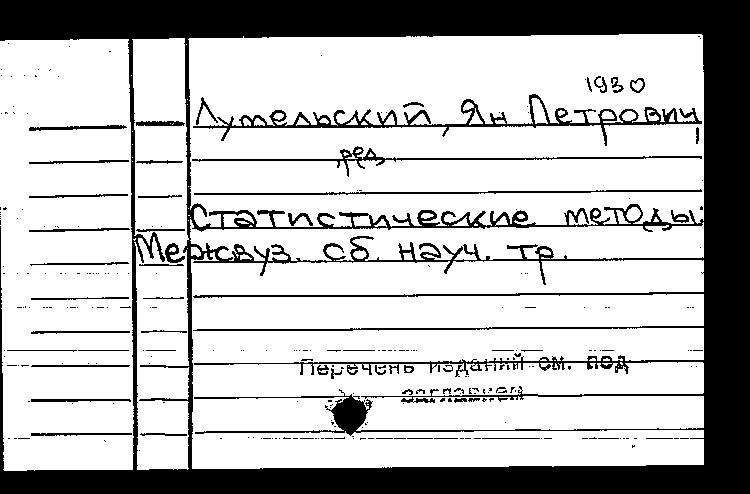 1930
Лумельский, Ян Петрович,
ред.
Статистические методы:
Межвуз. сб. науч. тр.
Перечень изданий см. под
заглавием